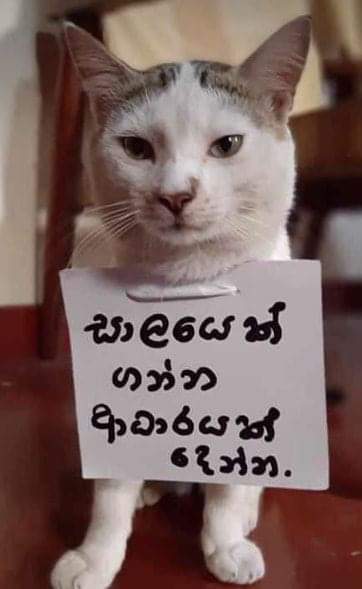 සාලයෙක්
ගන්න
ආධාරයක්
දෙන්න.